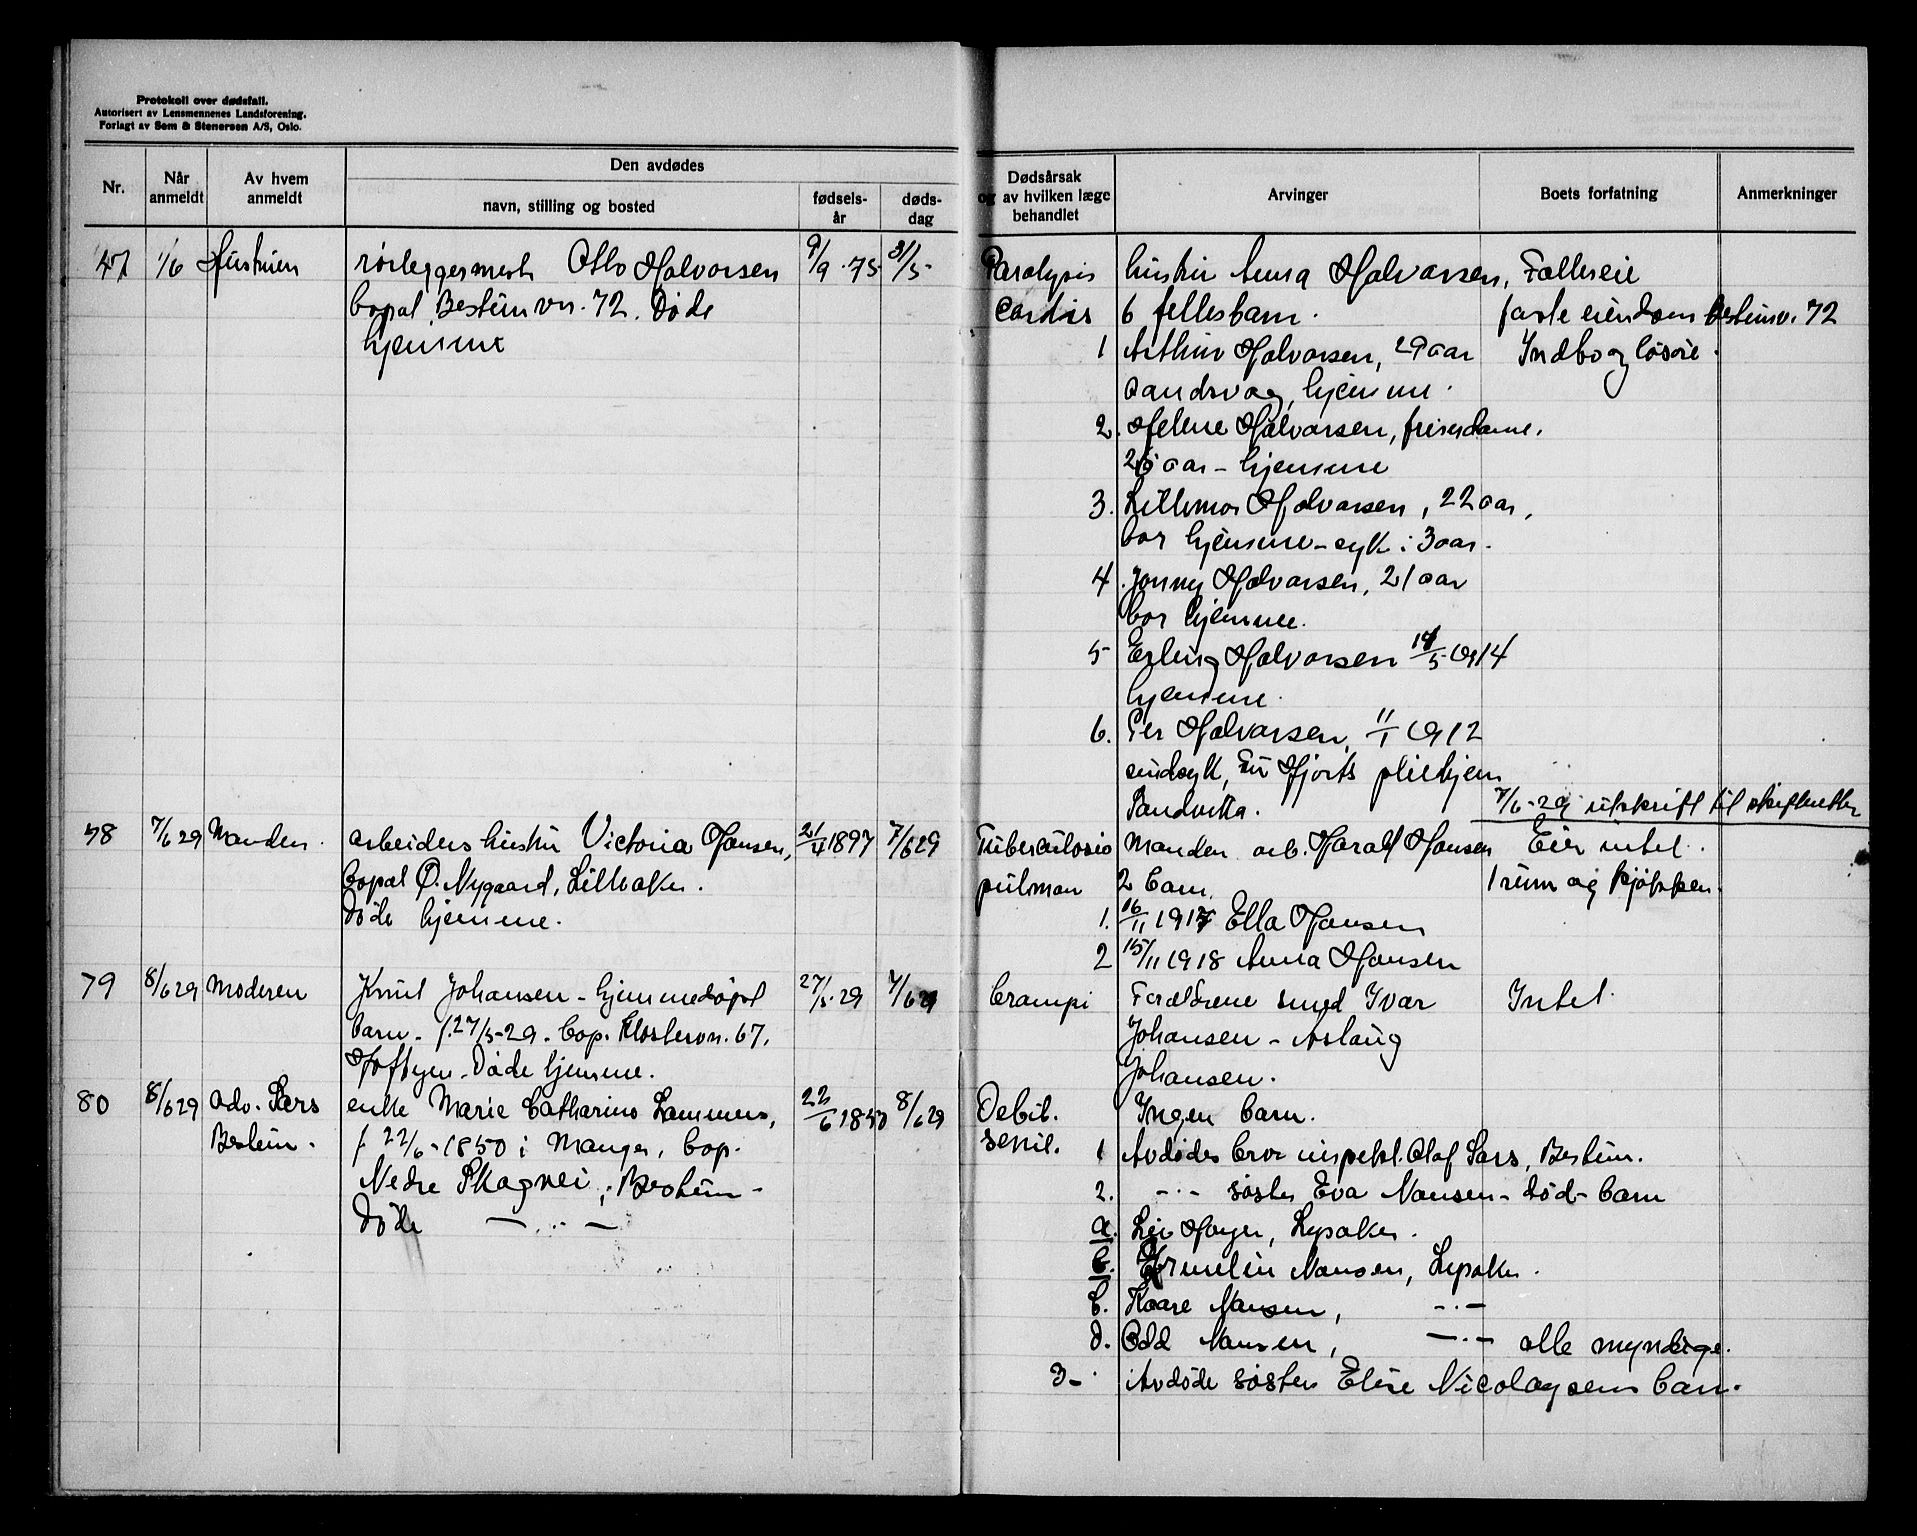 Protokoll over dødsfall.
Autorisert av Lensmennenes Landsforening.
Forlagt av Sem & Stenersen A/S, Oslo.
Nr.
Når anmeldt
Av hvem anmeldt
Den avdødes
navn, stilling og bosted
fødsels-år
døds-dag
Dødsårsak og av hvilken læge behandlet
Arvinger
Boets forfatning
Anmerkninger
47 1/6 Hustruen
rørleggermestr Otto Halvorsen 9/9 .75 31/5
bopæl Bestumvn. 72. Døde
hjemme
Paralysis
cordis
hustru Anna Halvorsen,
6 fellesbarn.
1 Arthur Halvorsen, 29 aar
hjemme.
2. Helene Halvorsen, friserdame.
26 aar - hjemme
3. Lillemor Halvorsen, 22 aar,
bor hjemme - syk i 3 aar.
4. Jonny Halvorsen, 21 aar
bor hjemme.
5 Erling Halvorsen 14/5 1914
hjemme.
6. Per Halvorsen, 11/1 1912
sindsyk, Fru Hjorts pleiehjem
Sandvika.
Felleseie
faste eiendom Bestumv. 72
Indbo og løsøre.
7/6-29 utskrift til skifteretten
78 7/6 29 Manden.
arbeiders hustru Victoria Hansen, 21/4 1897 7/6 29
bopæl Ø. Nygaard, Lilleaker.
Døde hjemme.
Tuberculosis
pulmon
Manden arb. Harald Hansen
2 barn
1. 16/11 1917 Ella Hansen
2 15/11 1918 Anna Hansen
Eier intet.
1 rum og kjøkken.
79 8/6 29 Moderen
Knut Johansen - hjemmedøpt 27/5 29 7/6 29
barn - f. 27/5-29. bop. Klostervn. 67.
Høfbyen. Døde hjemme.
Crampi
Forældrene smed Ivar
Johansen - Aslaug
Johansen.
Intet.
80 8/6 29 Adv. Sars
Bestum.
enke Marie Catharina Lammers, 22/6 1850 8/6 29
f 22/6-1850 i Manger, bop.
Nedre Skogvei, Bestum -
Døde — . . —
Debil.
senil.
Ingen barn.
1 Avdødes bror inspekt. Olaf Sars, Bestum.
2. - . - søster Eva Nansen - død - barn
a. Liv Høyer, Lysaker.
b. Irmelin Nansen, Lysaker.
c. Kaare Nansen, - . -
d. Odd Nansen, - . - alle myndige.
3 - Avdøde søster Elise Nicolaysens barn.